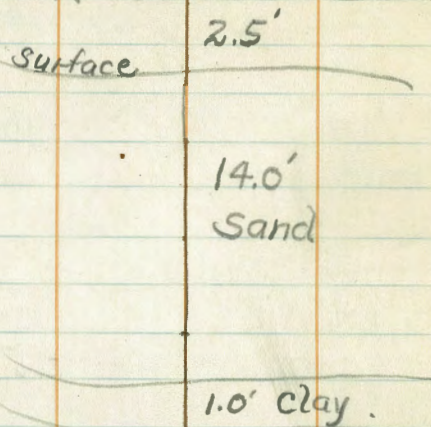 2.5'
surface
14.0'
Sand
1.0' Clay.